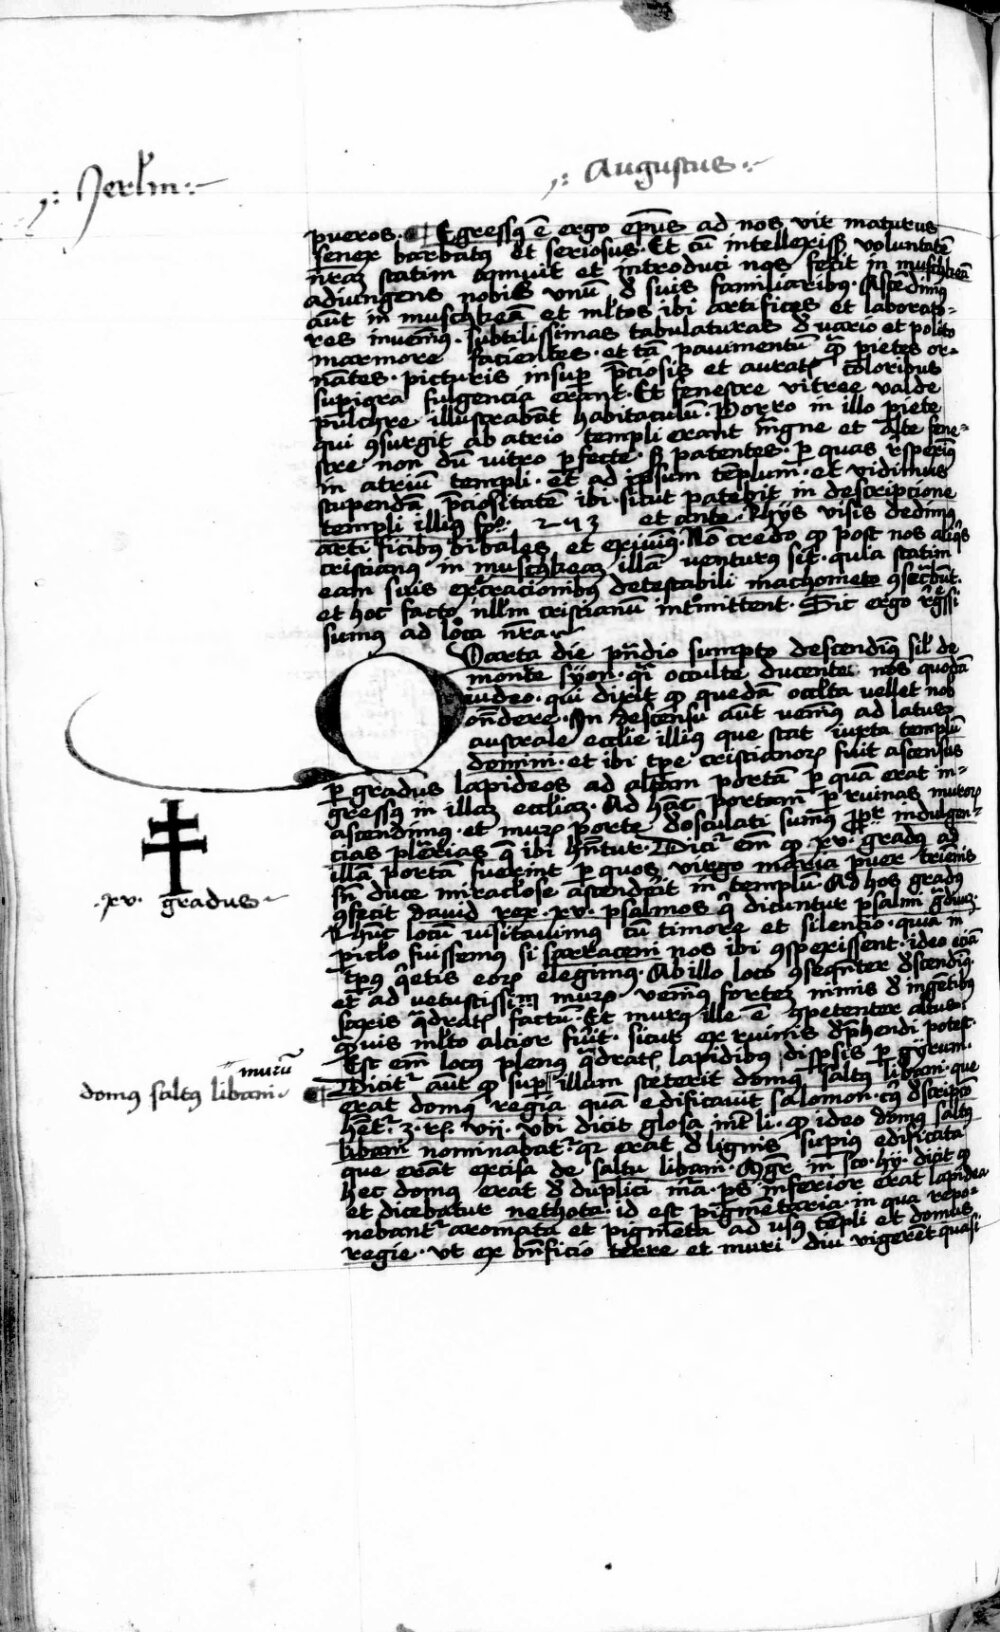 Jerlm
Augustus
pueros. Egressus ē ergo ep̄us ad nos vir maturus
senex barbatus et seriosus. Et cū intellexisset voluntatē
nr̄am statim annuit et introduci nos fecit in muschkeā
adiungens nobis vnū de suis familiaribus. Ascēdimus
aūt in muschkeā et ml̄tos ibi artifices et laborato-
res inuenimus. subtilissimas tabulaturas de vario et polito
marmore facientes. et tā pauimentū quā pietes or-
nātes. picturis insuper p̄ciosis et auratis coloribus
supiora fulgencia erant. Et fenestre vitree valde
pulchre illustrabāt habitaculū. Porro in illo piete
qui consurgit ab atrio templi erant mg̃ne et alte fene-
stre non dū vitro perfecte. sed patentes. per quas respeximus
in atriū templi. et ad ipsum templum. et vidimus
stupendā p̄ciositatē ibi. sicut patebit in descripcione
templi illius fo. 243 et ante. Hijs visis dedimus
artificibus bibales et exiuimus. Nō credo quod post nos aliquis
cristianus in muschkeam illā venturus sit. quia statim
eam suis execracionibus detestabili machometo consecrabūt.
et hoc facto nullum cristianū intromittent. Sic ergo regressi
sumus ad loca nr̄a.
Quarta die prandio sumpto descendimus simul de
monte syon. quasi occulte ducente nos quodā
iudeo. qui dixit quod quedā occulta vellet nob
ostendere. In descensu aūt venimus ad latus
australe ecclesie illius que stat iuxta templū
domini. et ibi tpe cristianorum fuit ascensus
per gradus lapideos ad altam portā per quā erat in-
gressus in illam eccliam. Ad hāc portam per ruinas murorum
ascendimus. et murum porte deosculati sumus propter indulgen-
cias plenarias que ibi habentur. Dicitur enim quod .xv. gradus ad
illā portā fuerint per quos virgo maria puer triēnis
sine duce miraculose ascenderit in templū. Ad hos gradus
confecit dauid rex .xv. psalmos qui dicuntur psalmi graduum.
Hunc locū visitauimus cū timore et silencio. quia in
periculo fuissemus si sarraceni nos ibi conspexissent. ideo eciā
tpus quietis eorum elegimus. Ab illo loco consequenter descendimus
et ad vetustissimum murum venimus fortem nimis de ingentibus
saxis quadratis factū. Et murus ille ē competenter altus.
quāuis multo alcior fuerit. sicut ex ruinis deprehendi potest.
Est enim locus plenus quadratis lapidibus dispersis per gyrum.
Dicitur aūt quod super illam steterit domus saltus libani. que
erat domus regia quam edificauit salomon. cuius descripcio
habetur .3. re. vij. vbi dicit glosa interli. quod ideo domus saltus
libani nominabatur. quia erat de lignis superius edificata
que erāt excisa de saltu libani. Mgr̄ in sco. hy. dicit quod
hec domus erat de duplici materia. pars inferior erat lapidea
et dicebatur nethota. id est pigmentaria. in qua repo-
nebantur aromata et pigmēta ad usus templi et domus
regie. vt ex beneficio terre et muri diu vigerēt quasi
.xv. gradus
murū
domus saltus libani